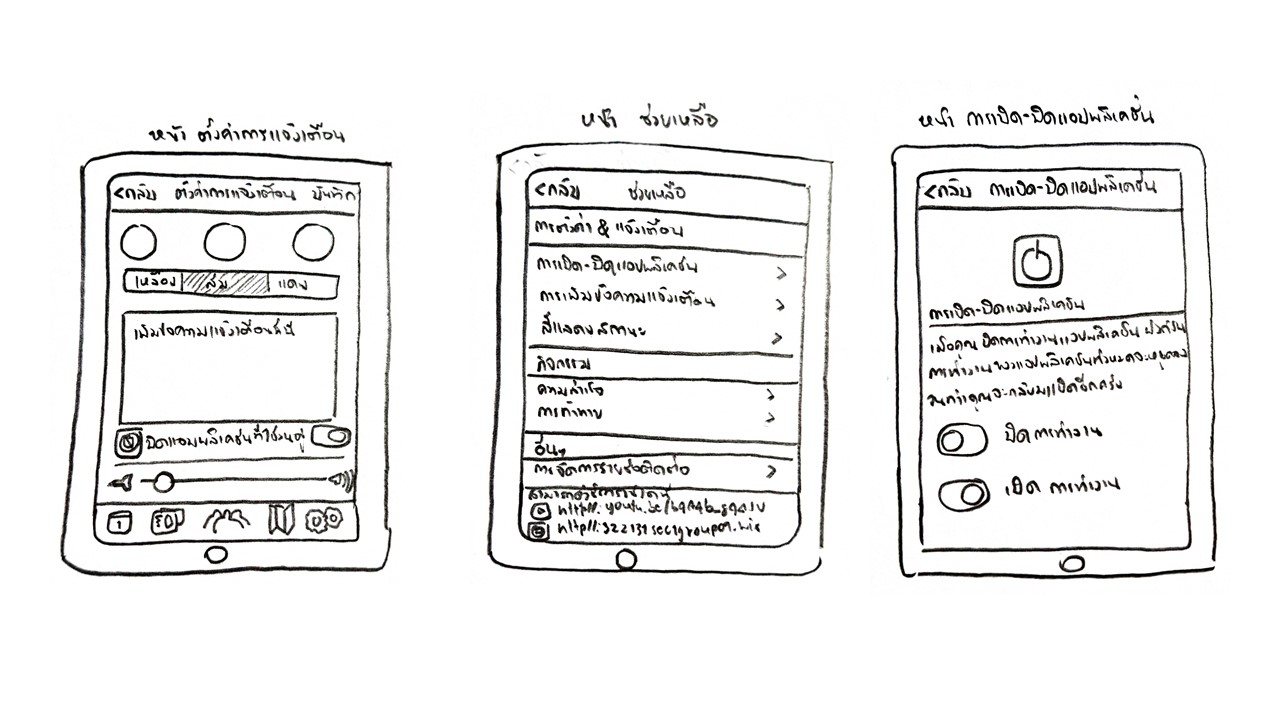 หน้า ตั้งค่าการแจ้งเตือน
<กลับ ตั้งค่าการแจ้งเตือน บันทึก
เหลือง ส้ม แดง
เพิ่มข้อความแจ้งเตือนที่นี่
ปิดแอปพลิเคชันที่ใช้งานอยู่
1
หน้า ช่วยเหลือ
<กลับ ช่วยเหลือ
การตั้งค่า & แจ้งเตือน
การเปิด-ปิดแอปพลิเคชัน >
การเพิ่มข้อความแจ้งเตือน >
สีแสดงสถานะ >
กิจกรรม
ความสำเร็จ >
การท้าทาย >
อื่นๆ
การจัดการรายชื่อติดต่อ >
หน้า การเปิด-ปิดแอปพลิเคชั่น
<กลับ การเปิด-ปิดแอปพลิเคชั่น
การเปิด-ปิดแอปพลิเคชัน
เมื่อคุณ ปิดการทำงานแอปพลิเคชัน ฟังก์ชัน
การทำงานของแอปพลิเคชันทั้งหมดจะหยุดลง
จนกว่าคุณจะกลับมาเปิดอีกครั้ง
ปิด การทำงาน
เปิด การทำงาน